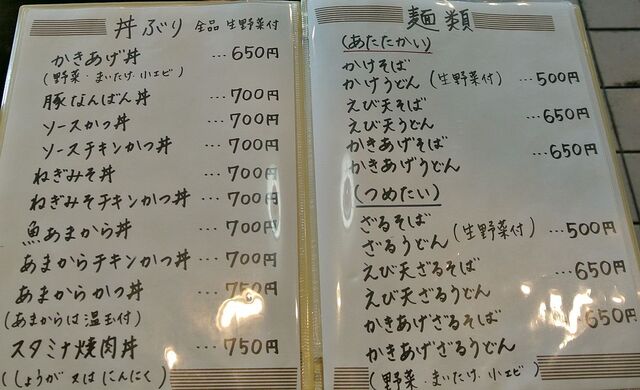 丼ぶり 全品 生野菜付
かきあげ丼 …650円
(野菜・まいたけ・小エビ)
豚なんばん丼 …700円
ソースかつ丼 …700円
ソースチキンかつ丼 …700円
ねぎみそ丼 …700円
ねぎみそチキンかつ丼 …700円
魚あまから丼 …700円
あまからチキンかつ丼 …700円
あまからかつ丼 …750円
(あまからは温玉付)
スタミナ焼肉丼 …750円
(しょうが又はにんにく)
麺類
(あたたかい)
かけそば
かけうどん (生野菜付) …500円
えび天そば
えび天うどん …650円
かきあげそば
かきあげうどん
(つめたい)
ざるそば
ざるうどん (生野菜付) …500円
えび天ざるそば
えび天ざるうどん …650円
かきあげざるそば …650円
かきあげざるうどん
(野菜・まいたけ・小エビ)